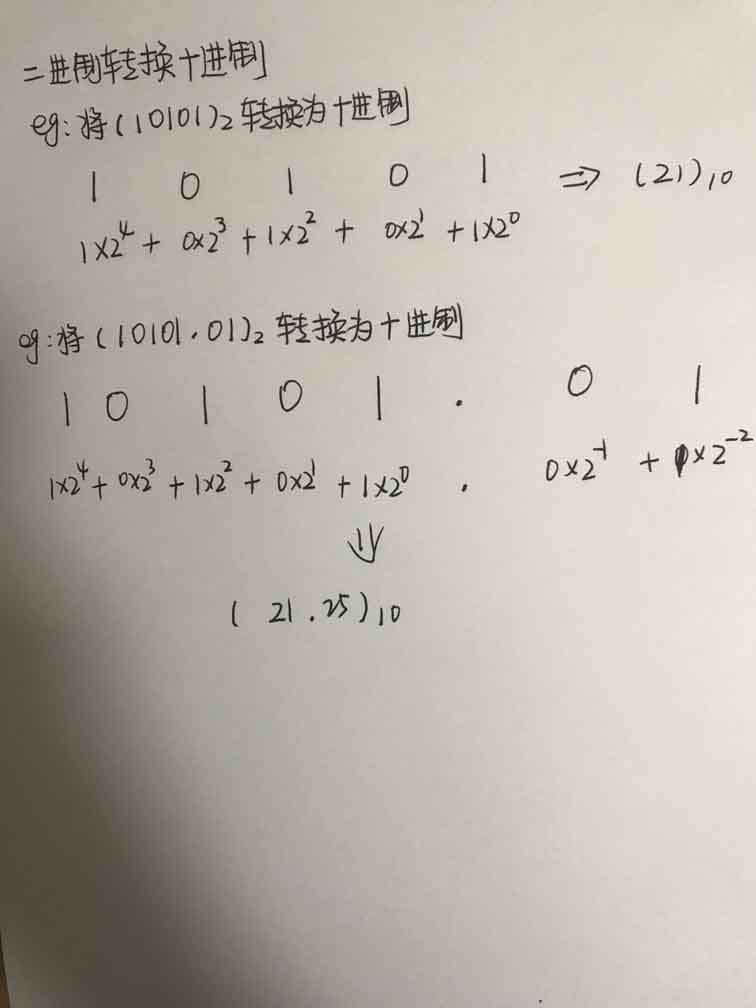 二进制转换十进制
eg:将(10101)₂转换为十进制
1 0 1 0 1 ⇒ (21)₁₀
1×2⁴ + 0×2³ + 1×2² + 0×2¹ + 1×2⁰
eg:将(10101.01)₂转换为十进制
1 0 1 0 1 . 0 1
1×2⁴ + 0×2³ + 1×2² + 0×2¹ + 1×2⁰ . 0×2⁻¹ + 1×2⁻²
⇓
(21.25)₁₀